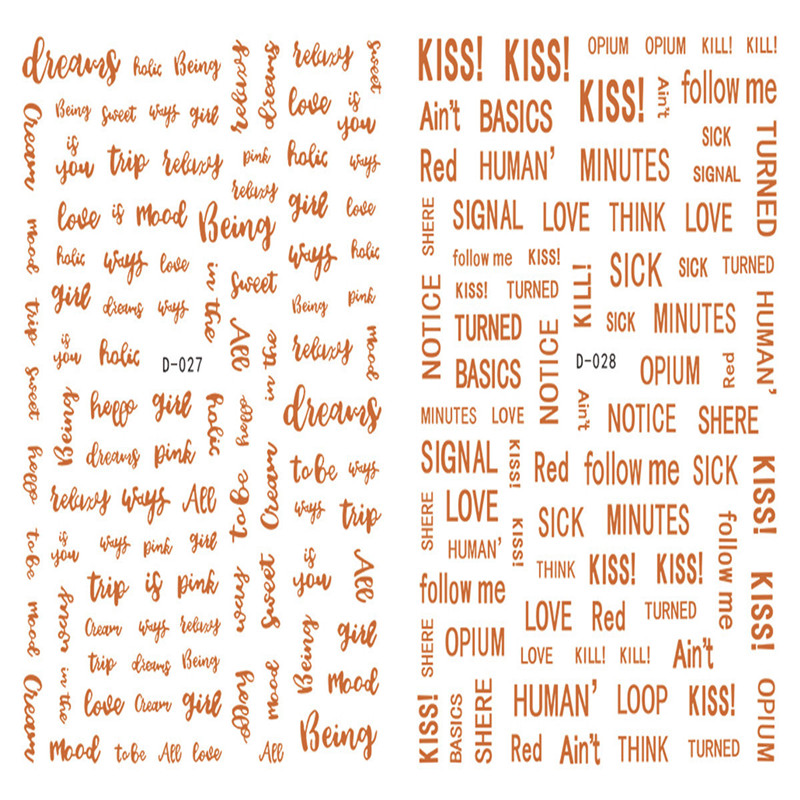 dreams holic Being
relaxy
dreams
relaxy
sweet
Cream
Being sweet ways girl
love is you
is you trip relaxy pink
holic ways
relaxy
girl love
mood
love is mood Being
holic ways love
in the
sweet
ways holic
girl dreams ways
Being pink
trip
is you holic
D-027
All
in the
relaxy
mood
sweet
Being
hello girl
holic
hello
dreams
dreams pink
hello
relaxy ways All
to be
Cream
to be ways
ways trip
to be
is you ways pink girl
is you
All
trip is pink
ways
sweet
mood
relaxy
Cream ways relaxy
girl
trip dreams Being
Being
mood
in the
Cream
love Cream girl
hello
mood
Being
mood to be All love
All
KISS! KISS! OPIUM OPIUM KILL! KILL!
KISS!
Ain't
follow me
Ain't BASICS
SICK
TURNED
Red HUMAN' MINUTES
SIGNAL
SHERE
SIGNAL LOVE THINK LOVE
follow me KISS!
KILL!
SICK SICK TURNED
NOTICE
KISS! TURNED
SICK MINUTES
HUMAN'
TURNED
NOTICE
D-028
BASICS
OPIUM
Red
MINUTES LOVE
Ain't
NOTICE SHERE
SIGNAL
KISS!
Red follow me SICK
KISS!
SHERE
LOVE
KISS!
SICK MINUTES
follow me
HUMAN'
THINK KISS! KISS!
follow me
KISS!
LOVE Red TURNED
SHERE
OPIUM
LOVE KILL! KILL! Ain't
KISS!
BASICS
SHERE
HUMAN' LOOP KISS!
OPIUM
Red Ain't THINK TURNED